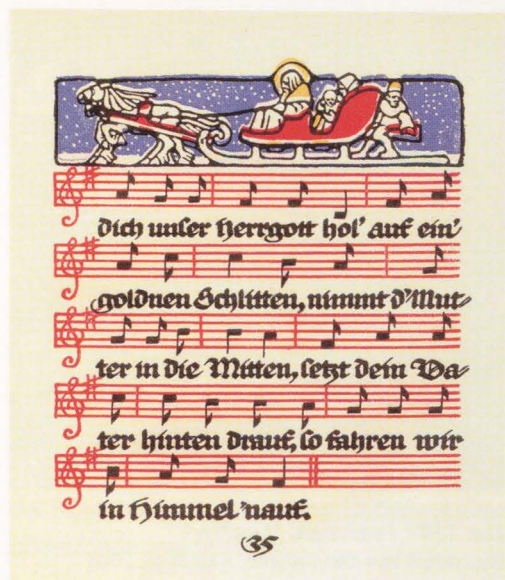 dich unser Herrgott hol' auf ein'
goldnen Schlitten, nimmt d'Mut-
ter in die Mitten, setzt dein Va-
ter hinten drauf, so fahren wir
in Himmel 'nauf.
35